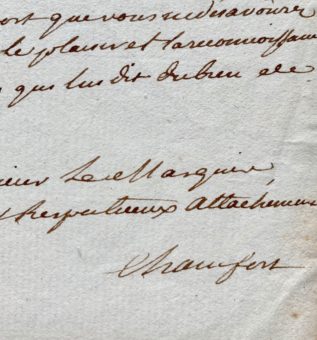 que vous me désavouiez
le plaisir et la reconnoissan
que lui dit du bien de
Le Marquis,
Respectueux attachemen
Chamfort